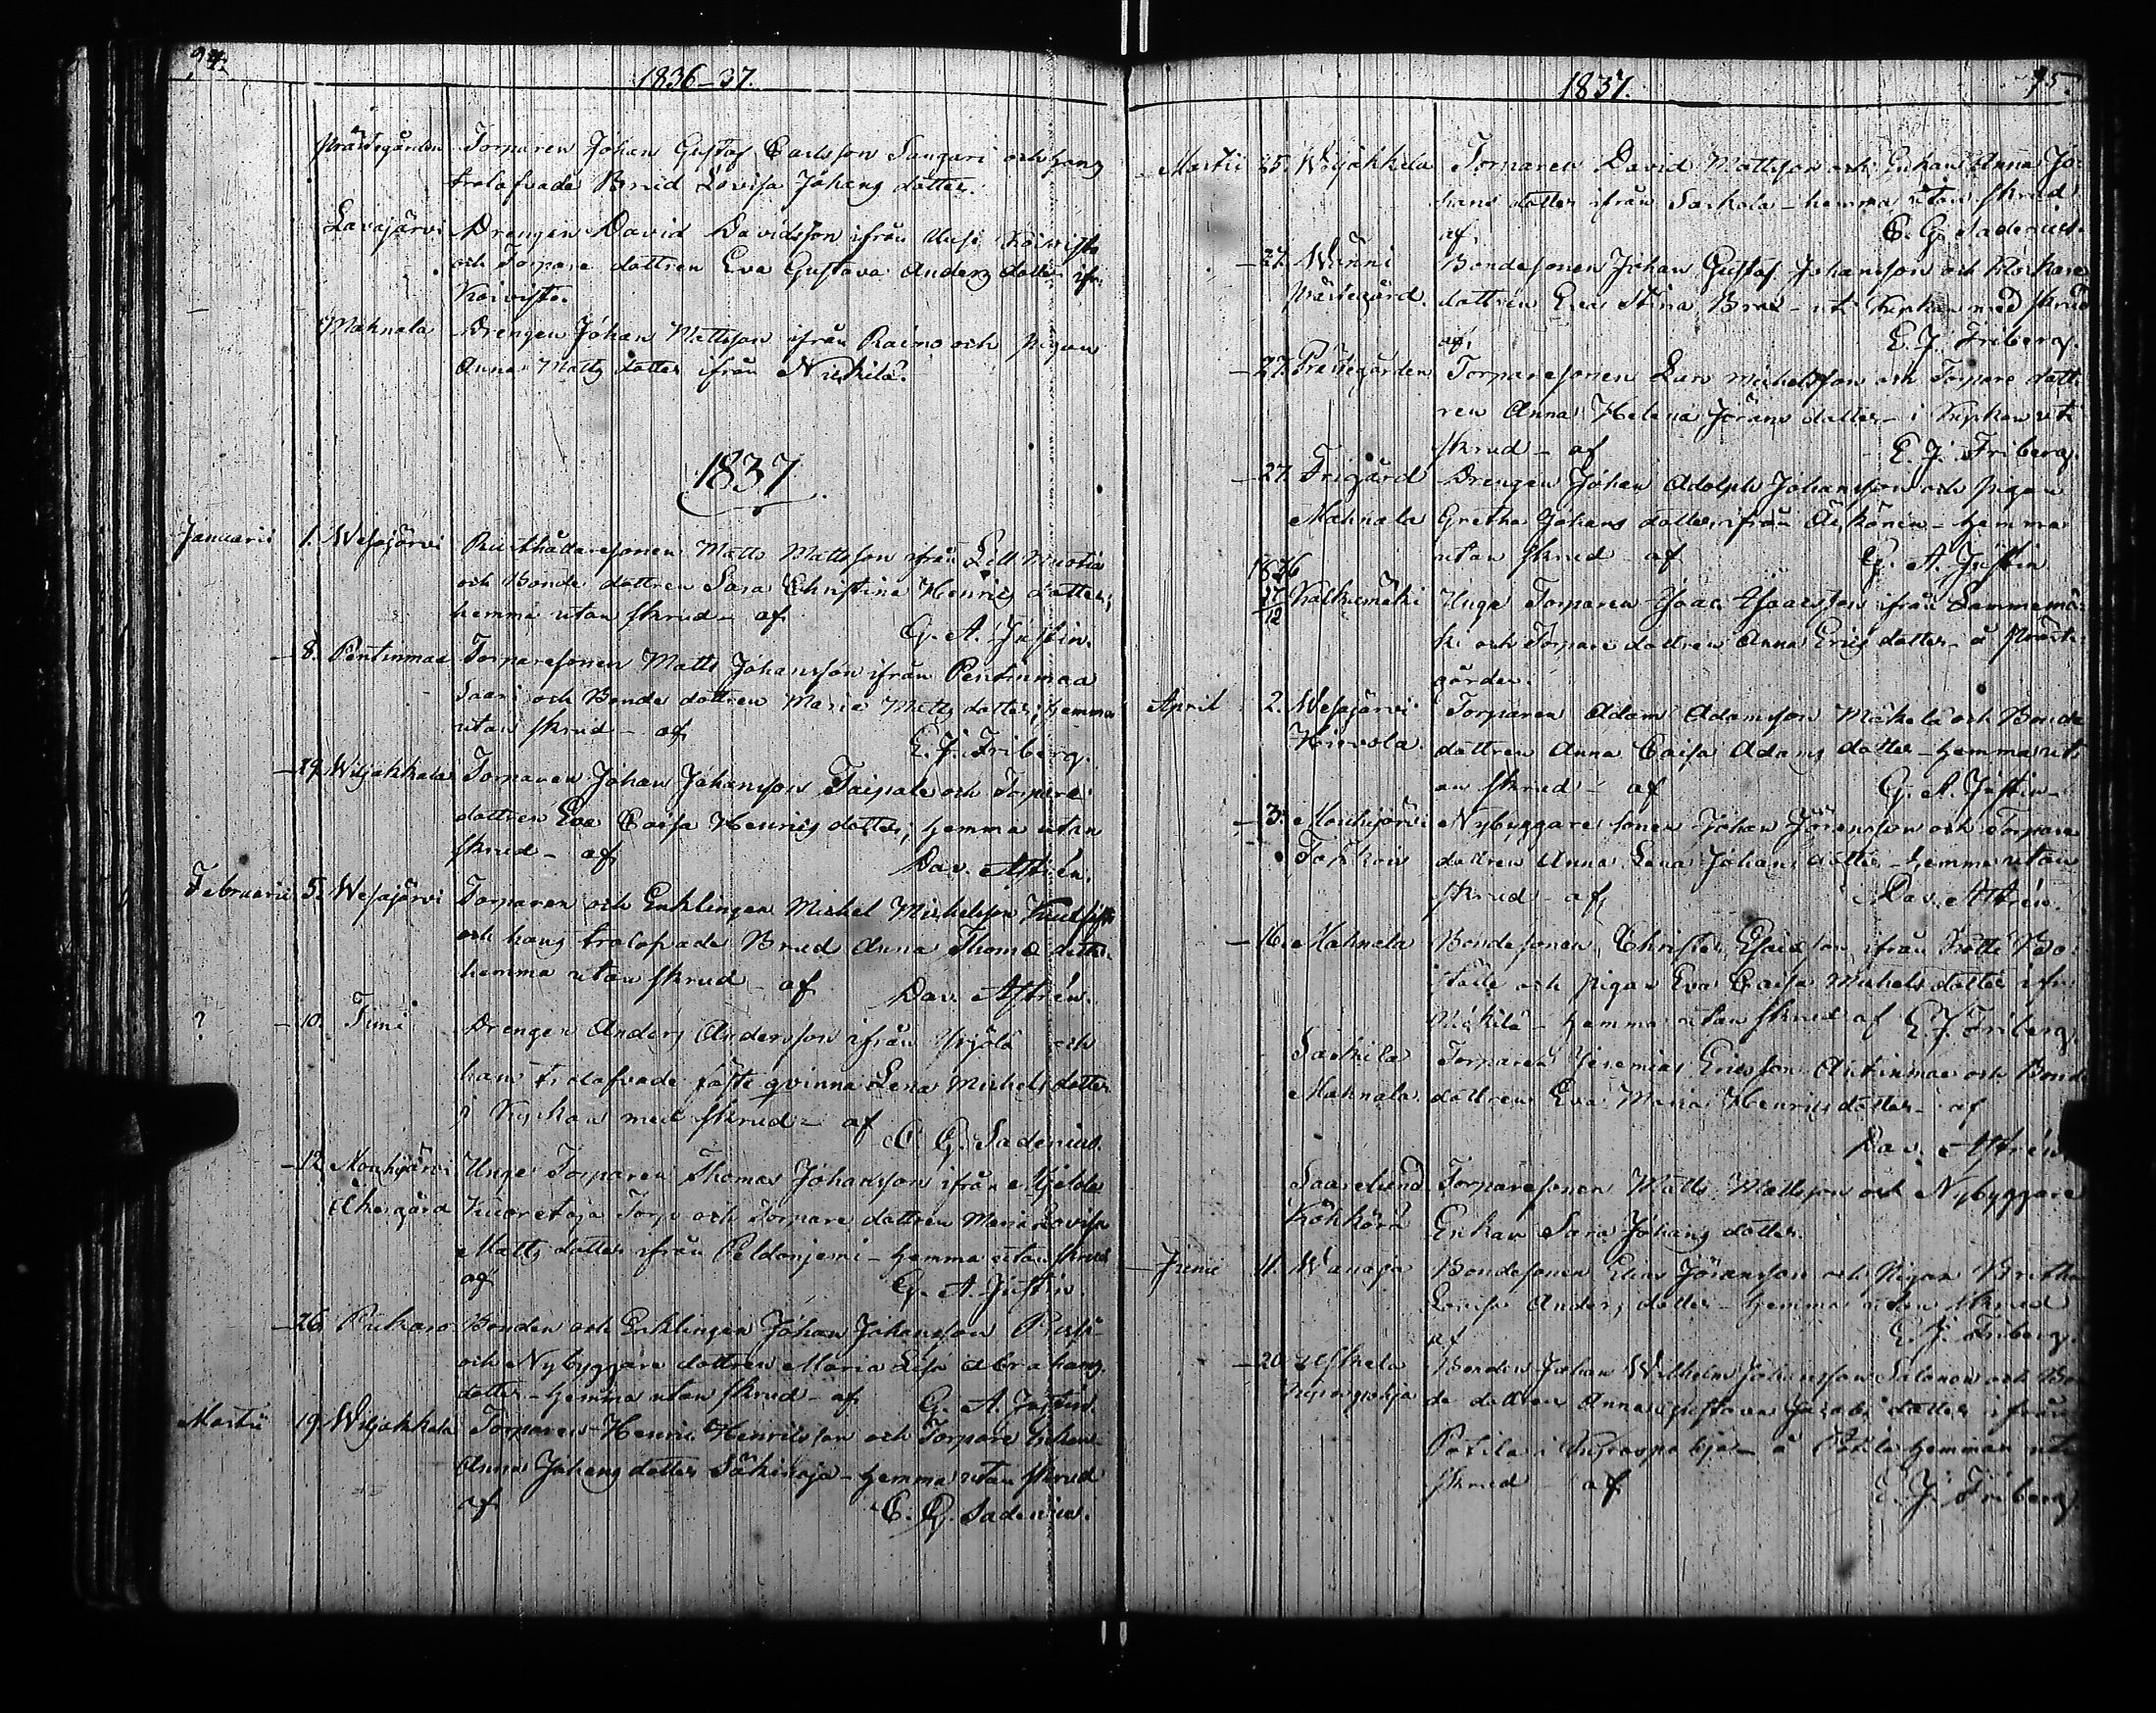 94.
1836-37.
Prästegården Torparen Johan Gustaf Carlsson Sangari och hans
trolofvade Brud Lovisa Johans dotter.
Lavajärvi Drengen David Davidsson ifrån Uusi Koivisto
och Torpare dottren Eva Gustava Anders dotter ifr.
Koivisto.
Mahnala Drengen Johan Mattsson ifrån Raimo och pigan
Anna Matts dotter ifrån
1837.
Januarii 1. Wesajärvi Rusthållaresonen Matts Mattsson ifrån Lill
och Bonde dottren Sara Christina Henrics dotter;
hemma utan skrud - af
G. A. Justin.
- 8. Pentinmaa Torparesonen Matts Johansson ifrån Pentinmaa
Saari och Bonde dottren Maria Matts dotter; hemma
utan skrud - af
E. J. Friberg.
- 29. Wiljakkala Torparen Johan Johansson Taipale och Torpare
dottren Eva Caisa Henrics dotter; hemma utan
skrud - af
Dav. Astrén.
Februarii 5. Wesajärvi Torparen och Enklingen Michel Michelsson
och hans trolofvade Brud Anna Thomæ dotter
hemma utan skrud - af Dav. Astrén.
? - 10. Timi Drengen Anders Andersson ifrån Yrjölä och
hans trolofvade fäste qvinna Lena Michels dotter
i Kyrkan med skrud - af
C. G. Sadenius.
- 12. Mouhijärvi Unge Torparen Thomas Johansson ifrån
Torp och Torpare dottren Maria Lovisa
Matts dotter ifrån Peldoniemi - hemma utan skrud
af
G. A. Justin.
- 26. Pukaro Bonden och Enklingen Johan Johansson
och Nybyggare dottren Maria Lisa Abrahams
dotter - hemma utan skrud - af G. A. Justin.
Martii 19. Wiljakkala Torparen Henric Henricsson och Torpare Enkan
Anna Johans dotter - hemma utan skrud
af
C. G. Sadenius.
1837.
95.
Martii 25. Wiljakkala Torparen David Mattsson och Enkan Anna Jo-
hans dotter ifrån Sarkola - hemma utan skrud
af
C. G. Sadenius.
- 27. Wänni Bondesonen Johan Gustaf Johansson och Klockare
Prästegård. dottren Eva Stina - uti Kyrkan med skrud
af
E. J. Friberg.
- 27. Prästegården Torparesonen Lars Michelsson och Torpare dott-
ren Anna Helena Jörans dotter - i Kyrkan uti
skrud - af
E. J. Friberg.
- 27. Frigård Drengen Johan Adolph Johansson och pigan
Mahnala Gretha Johans dotter ifrån - hemma
utan skrud af G. A. Justin
1836
Kalkumäki Unge Torparen Isaac Isaacsson ifrån
och Torpare dottren Anna Erics dotter - å Präste-
gården.
April 2. Wesajärvi Torparen Adam Adamsson Mäkelä och Bonde
dottren Anna Caisa Adams dotter - hemma ut-
an skrud - af G. A. Justin.
- 3. Mouhijärvi Nybyggare sonen Johan Jöransson och Torpare
dottren Anna Lena Johans dotter - hemma utan
skrud - af
Dav. Astrén.
- 16. Mahnala Bondesonen Christer ifrån Bo-
ställe och pigan Eva Caisa Michels dotter ifr.
- hemma utan skrud af E. J. Friberg.
Sarkila Torparen Jeremias Ericsson Antinmaa och Bonde
Mahnala dottren Eva Maria Henrics dotter - af
Dav. Astrén.
Torparesonen Matts Mattsson och Nybyggare
Enkan Sara Johans dotter.
- Junii 11. Wanaja Bondesonen Elias Jöransson och Pigan Britha
Lovisa Anders dotter - hemma utan skrud
af
E. J. Friberg.
- 20. Bonden Johan Wilhelm Johansson och Bon-
de dottren Anna Gustava Jacobs dotter ifrån
Pätilä i hemman utan
skrud - af
E. J. Friberg.